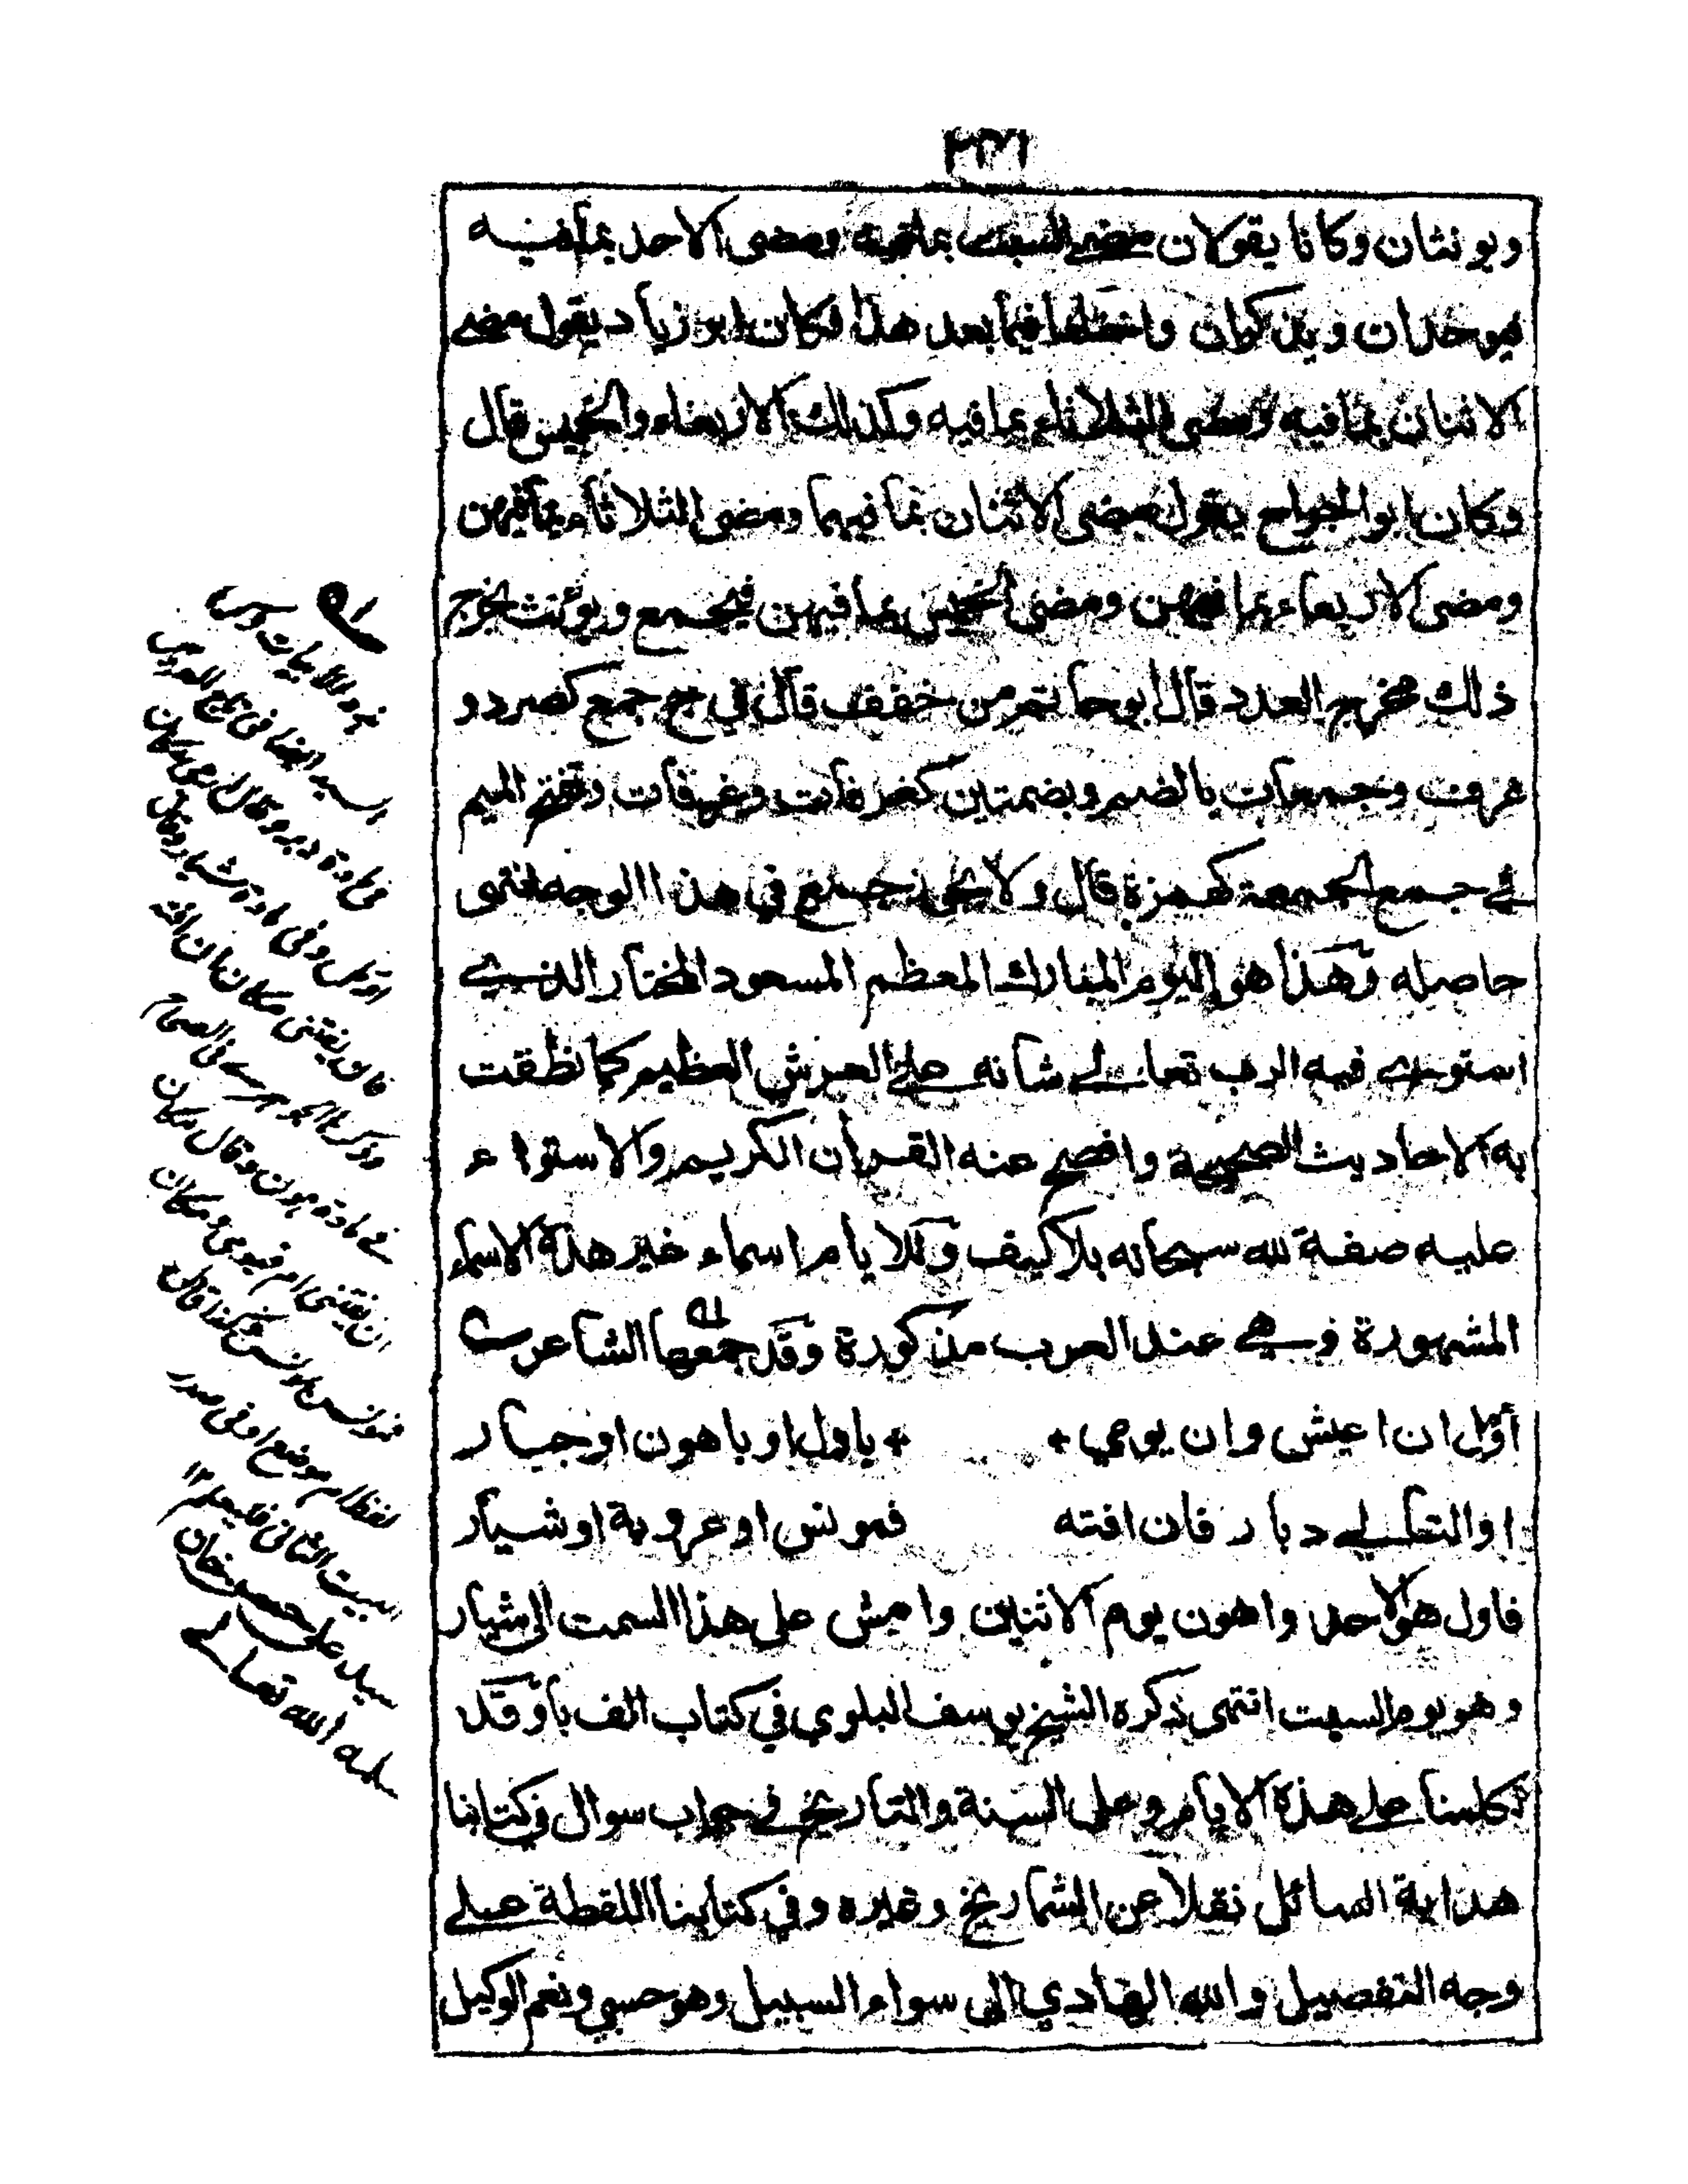 ٢٣٦
ويونثان وكانا يقولان مضى السبت بما فيه ومضى الاحد بما فيه
فيوحدان ويذكران واختلفا فيما بعد هذا فكان ابو زياد يقول مضے
الاثنان بما فيه ومضى الثلاثاء بما فيه وكذلك الاربعاء والخميس قال
وكان ابو الجراح يقول مضى الاثنان بما فيهما ومضى الثلاثاء بما فيهن
ومضى الاربعاء بما فيهن ومضى الخميس بما فيهن فيجمع ويؤنث يخرج
ذلك مخرج العدد قال ابو حاتم من خفف قال في ج جمع كصرد و
غرف وجمعات بالضم وبضمتين كغرفات وغرفات وتفتح الميم
في جمع الجمعة كهمزة قال ولا يجوز جمع في هذا الوجه انتهى
حاصله وهذا هو اليوم المبارك المعظم المسعود المختار الذي
استوى فيه الرب تعالے شانه علے العرش العظيم كما نطقت
به الاحاديث الصحيحة وافصح عنه القرأن الكريم والاستواء
عليه صفة لله سبحانه بلا كيف وللايام اسماء غير هذه الاسماء
المشهورة وهے عند العرب مذكورة وقد جمعها الشاعر
أؤمل ان اعيش وان يومي + + باول او باهون او جبار
او التالے دبار فان افته فمونس او عروبة او شيار
فاول هو الاحد واهون يوم الاثنين وامش على هذا السمت الى شيار
وهو يوم السبت انتهى ذكره الشيخ يوسف البلوي في كتاب الف با وقد
تكلمنا علے هذه الايام وعلى السنة والتاريخ في جواب سوال في كتابنا
هداية السائل نقلا عن الشماريخ وغيره وفي كتابنا اللقطة علے
وجه التفصيل والله الهادي الى سواء السبيل وهو حسبي ونعم الوكيل
ذكر الابيات
السيد ايضا في تاج العروس
في مادة دبر وقال
او يومي وفي مادة شبار وقال
فان يفتني مكان ان افته
وذكرها الجوهرے في الصحاح
في مادة هون وقال مكان
ان يفتني ام فيومي ومكان
فمونس مونس وكذا قال
لفظ ام موضع او في صدر
البيت الثاني فليعلم ١٢
سيد علي حسن خان
سلمه الله تعالے